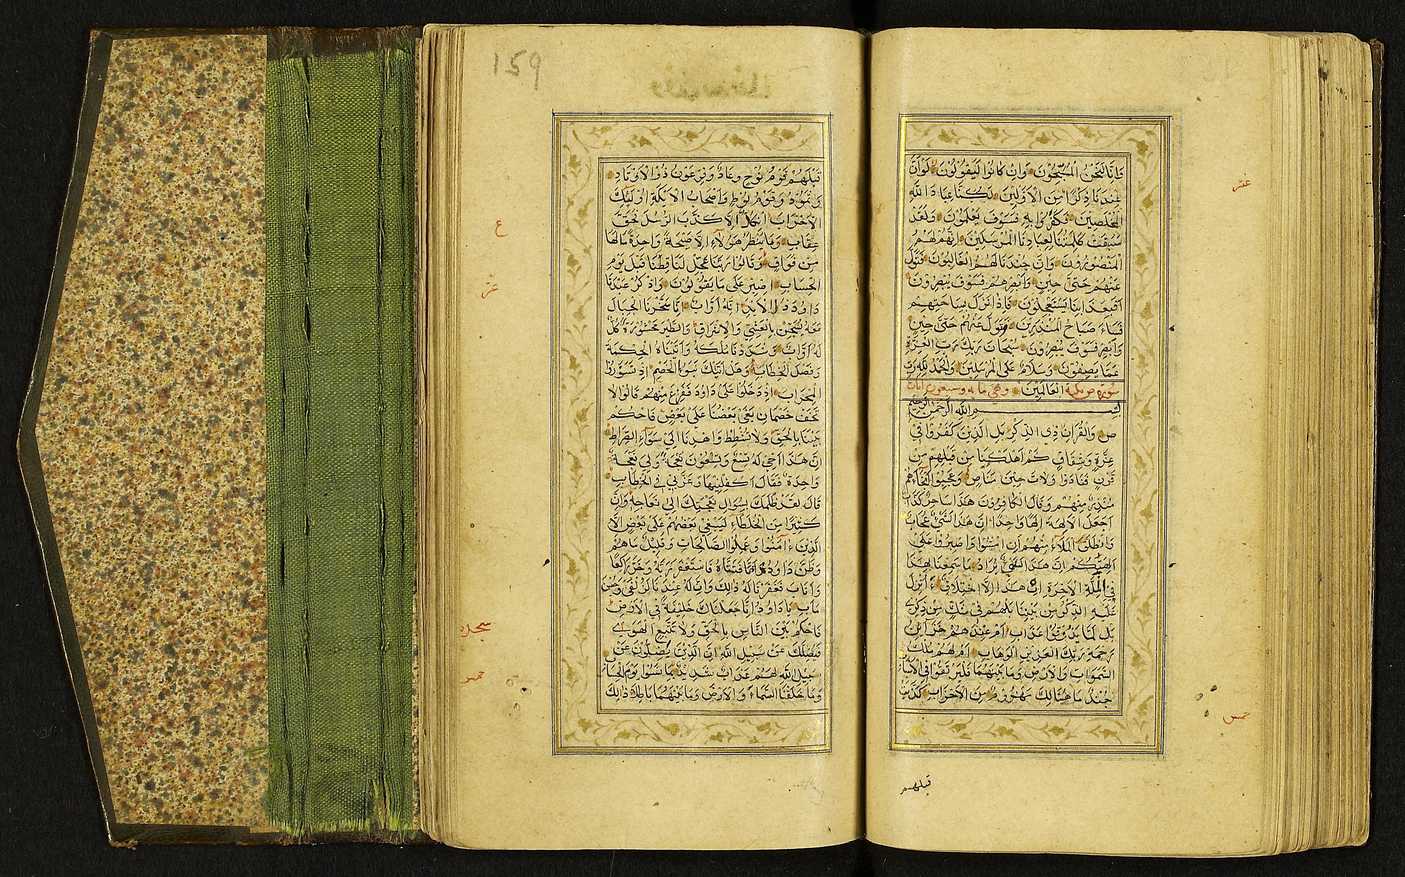 وانا لنحن المسبحون وان كانوا ليقولون لو ان
عندنا ذكرا من الاولين لكنا عباد الله
المخلصين فكفروا به فسوف يعلمون ولقد
سبقت كلمتنا لعبادنا المرسلين انهم لهم
المنصورون وان جندنا لهم الغالبون فتول
عنهم حتى حين وابصرهم فسوف يبصرون
افبعذابنا يستعجلون فاذا نزل بساحتهم
فساء صباح المنذرين وتول عنهم حتى حين
وابصر فسوف يبصرون سبحان ربك رب العزة
عما يصفون وسلام على المرسلين والحمد لله رب
العالمين سورة ص مكية وهي
بسم الله الرحمن الرحيم
ص والقران ذي الذكر بل الذين كفروا في
عزة وشقاق كم اهلكنا من قبلهم من
قرن فنادوا ولات حين مناص وعجبوا ان جاءهم
منذر منهم وقال الكافرون هذا ساحر كذاب
اجعل الالهة الها واحدا ان هذا لشيء عجاب
وانطلق الملاء منهم ان امشوا واصبروا على
الهتكم ان هذا لشيء يراد ما سمعنا بهذا
في الملة الاخرة ان هذا الا اختلاق ءانزل
عليه الذكر من بيننا بل هم في شك من ذكري
بل لما يذوقوا عذاب ام عندهم خزائن
رحمة ربك العزيز الوهاب ام لهم ملك
السموات والارض وما بينهما فليرتقوا في الاسباب
جند ما هنالك مهزوم من الاحزاب كذبت
قبلهم
عشر
خمس
159
قبلهم قوم نوح وعاد وفرعون ذو الاوتاد
وثمود وقوم لوط واصحاب الايكة اولئك
الاحزاب ان كل الا كذب الرسل فحق
عقاب وما ينظر هؤلاء الا صيحة واحدة ما لها
من فواق وقالوا ربنا عجل لنا قطنا قبل يوم
الحساب اصبر على ما يقولون واذكر عبدنا
داود ذا الايد انه اواب انا سخرنا الجبال
معه يسبحن بالعشي والاشراق والطير محشورة كل
له اواب وشددنا ملكه واتيناه الحكمة
وفصل الخطاب وهل اتيك نبؤا الخصم اذ تسوروا
المحراب اذ دخلوا على داود ففزع منهم قالوا لا
تخف خصمان بغى بعضنا على بعض فاحكم
بيننا بالحق ولا تشطط واهدنا الى سواء الصراط
ان هذا اخي له تسع وتسعون نعجة ولي نعجة
واحدة فقال اكفلنيها وعزني في الخطاب
قال لقد ظلمك بسؤال نعجتك الى نعاجه وان
كثيرا من الخلطاء ليبغي بعضهم على بعض الا
الذين ءامنوا وعملوا الصالحات وقليل ما هم
وظن داود انما فتناه فاستغفر ربه وخر راكعا
واناب فغفرنا له ذلك وان له عندنا لزلفى وحسن
ماب يا داود انا جعلناك خليفة في الارض
فاحكم بين الناس بالحق ولا تتبع الهوى
فيضلك عن سبيل الله ان الذين يضلون عن
سبيل الله لهم عذاب شديد بما نسوا يوم الحساب
وما خلقنا السماء والارض وما بينهما باطلا ذلك
ع
عشر
سجده
خمس